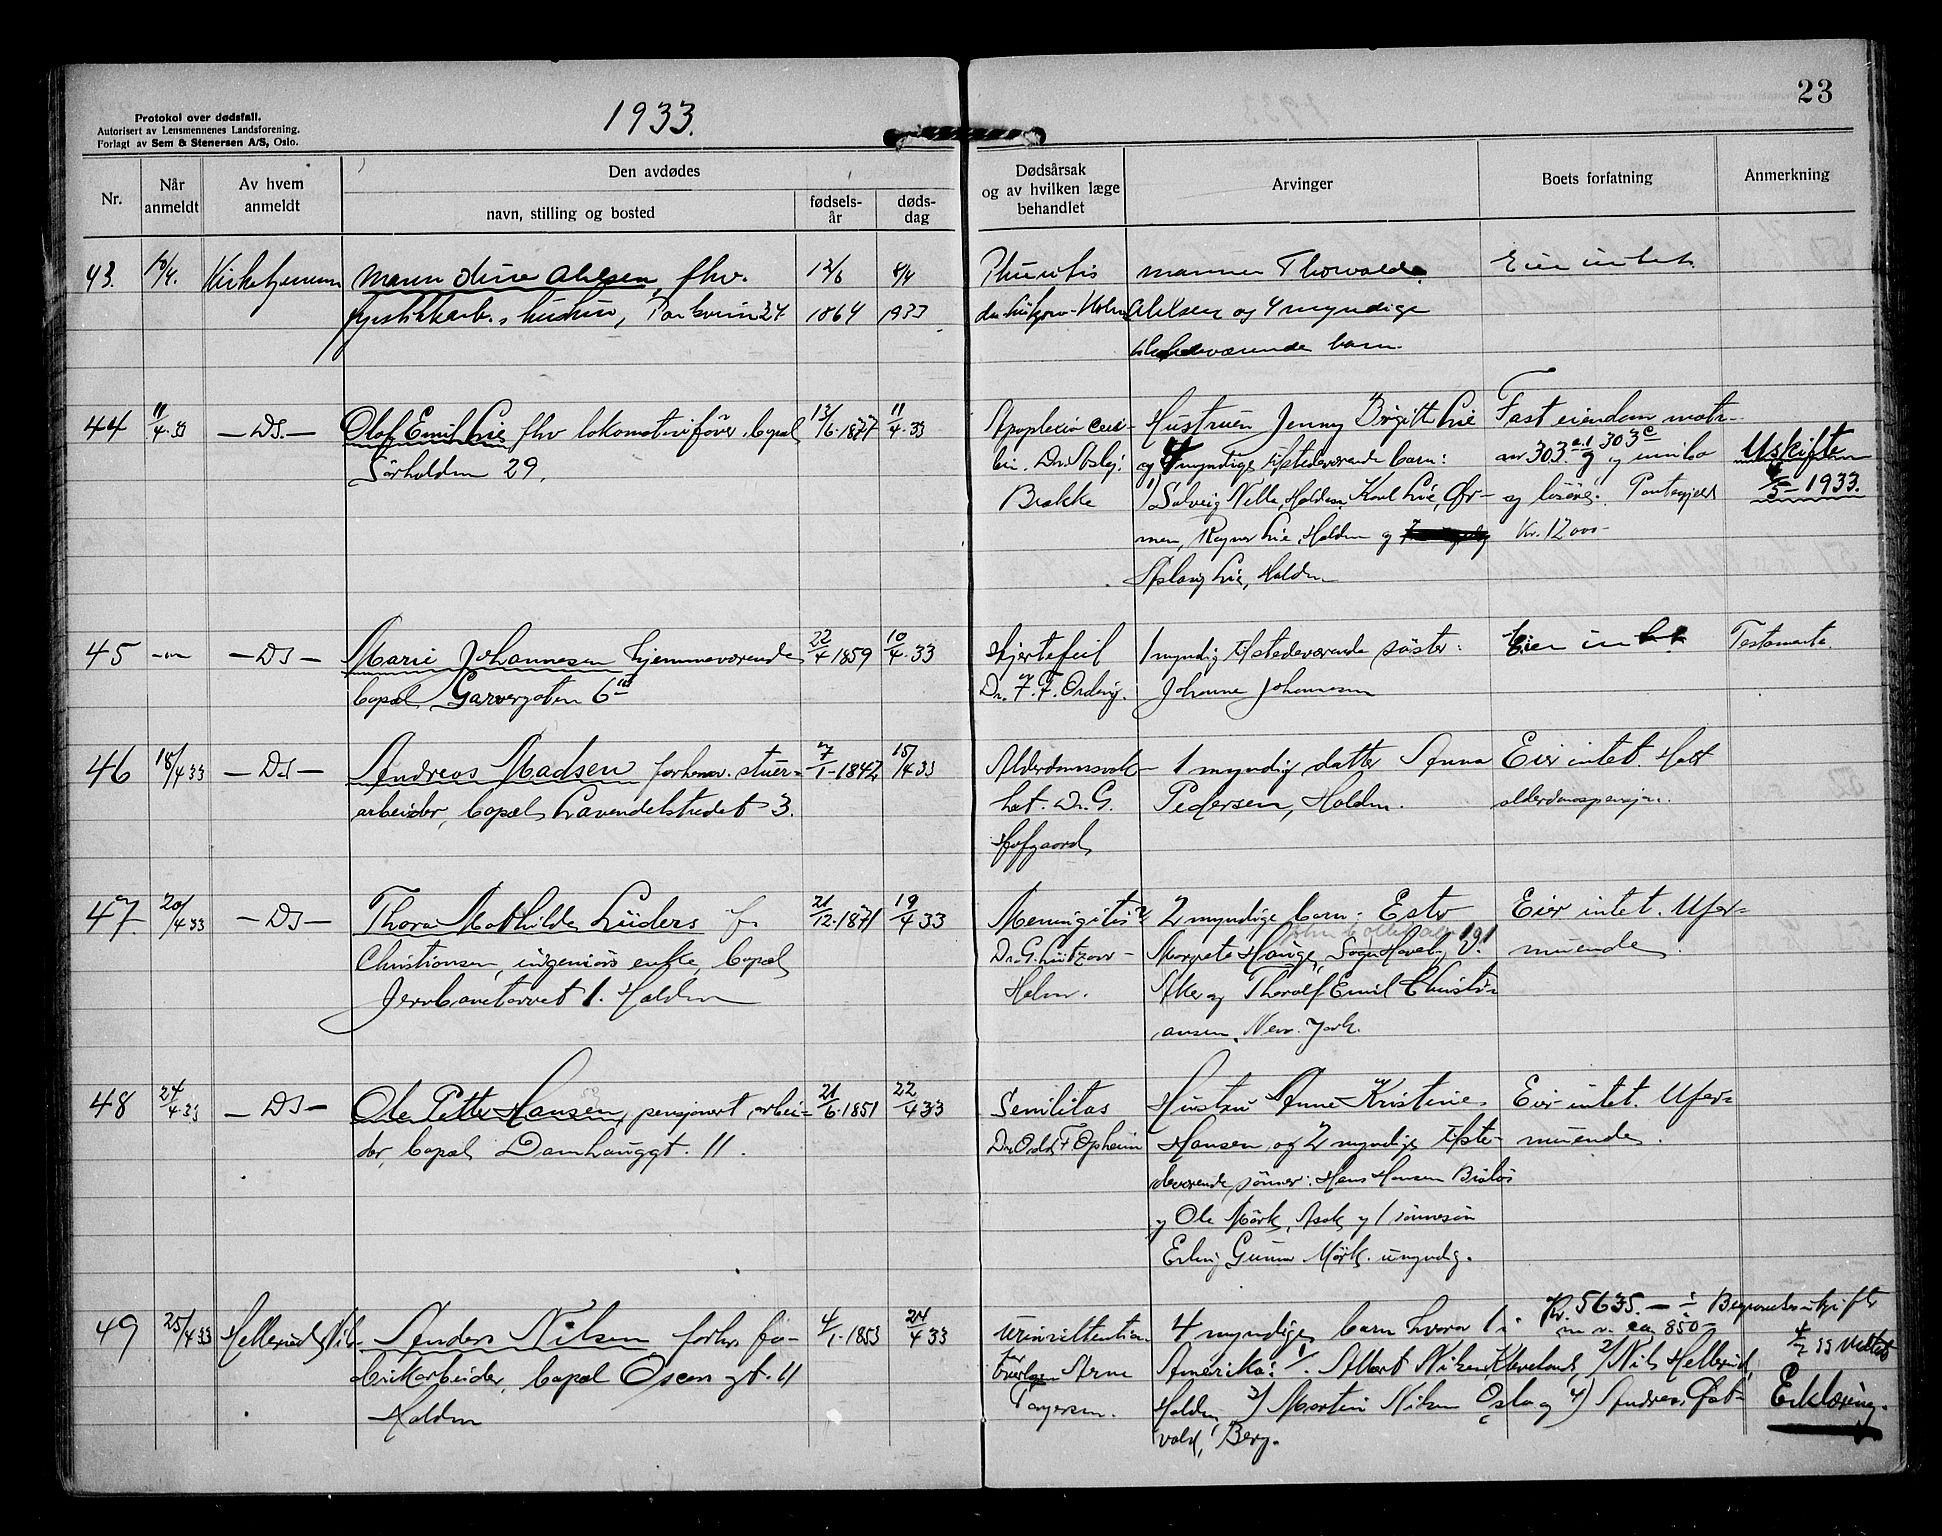 1933.
23
Protokol over dødsfall.
Autorisert av Lensmennenes Landsforening.
Forlagt av Sem & Stenersen A/S, Oslo.
Nr.
Når anmeldt
Av hvem anmeldt
Den avdødes
navn, stilling og bosted
fødsels-år
døds-dag
Dødsårsak og av hvilken læge behandlet
Arvinger
Boets forfatning
Anmerkning
43. 10/4. fhv. 12/8 8/4 mannen Thorvald Eier intet
hustru, 24 1864 1933 og 4 myndige
tilstedeværende barn.
44 11/4.33 —DS.— Olaf Emil Lie fhv lokomotivfører, bopæl 13/6.1877 11/4.33 Apoplexia cere- Hustruen Jenny Birgitte Lie Fast eiendom matr-
29. bri. Dr. og 4 myndige tilstedeværende barn: nr 303 303 c og innbo Uskifte
Brække 1) Solveig Halden, Karl Lie, og løsøre. Pantegjeld 5-1933.
Ragnar Lie, Halden og Kr. 12000-
Aslaug Lie, Halden
45 —DS— Marie Johannesen hjemmeværende 22/4 1859 10/4.33 Hjertefeil 1 myndig tilstedeværende søster: Eier intet Testamente.
bopæl Garvergaten 6 Dr. F. F. Ording. Johanne Johannesen
46 18/4 33 —DS— Andreas Madsen forhenv. stuer- 7/1-1842 15/4 33 Alderdomssvak- 1 myndig datter Anna Eier intet. Hatt
arbeider, bopæl Lavendelstredet 3. het. Dr. G. Pedersen, Halden. alderdomspensjon.
Hofgaard
47 20/4 33 —DS— Thora Mathilde Lüders f. 21/12-1871 19/4 33 Meningitis? 2 myndige barn: Ester Eier intet. Ufor-
Christiansen, ingeniørs enke, bopæl Dr. G. Lützow- Margrete Hauge, muende.
Jernbanetorvet 1. Halden Holm. Aker og Thoralf Emil Christi-
ansen, New-York.
48 24/4.33 —DS— Ole Petter Hansen, pensjonert arbei- 21/6.1851 22/4 33 Senilitas Hustru Anne Kristine Eier intet. Ufor-
der, bopæl Damhauggt. 11. Dr. Odd F Opheim Hansen og 2 myndige tilste- muende.
deværende sønner: Hans Hansen
og Ole Mørk, Asak og 1 sønnesøn
Erling Gunnar Mørk. umyndig.
49 25/4 33 Hellerud Anders Nilsen, forhv. fa- 4/1-1853 24/4 33 Urinretention 4 myndige barn hvorav 1 i Kr. 5635.— ÷ Begravelsesutgifter
brikarbeider, bopæl Oscars gt. 11 Overlegen Arne Amerika: 1/. Albert Nilsen, Cleveland, 2) Nils Hellerud, 850-
Halden Torgersen. Halden, 3) Martin Nilsen Oslo og 4) Andreas Øst- Erklæring.
vold, Berg.